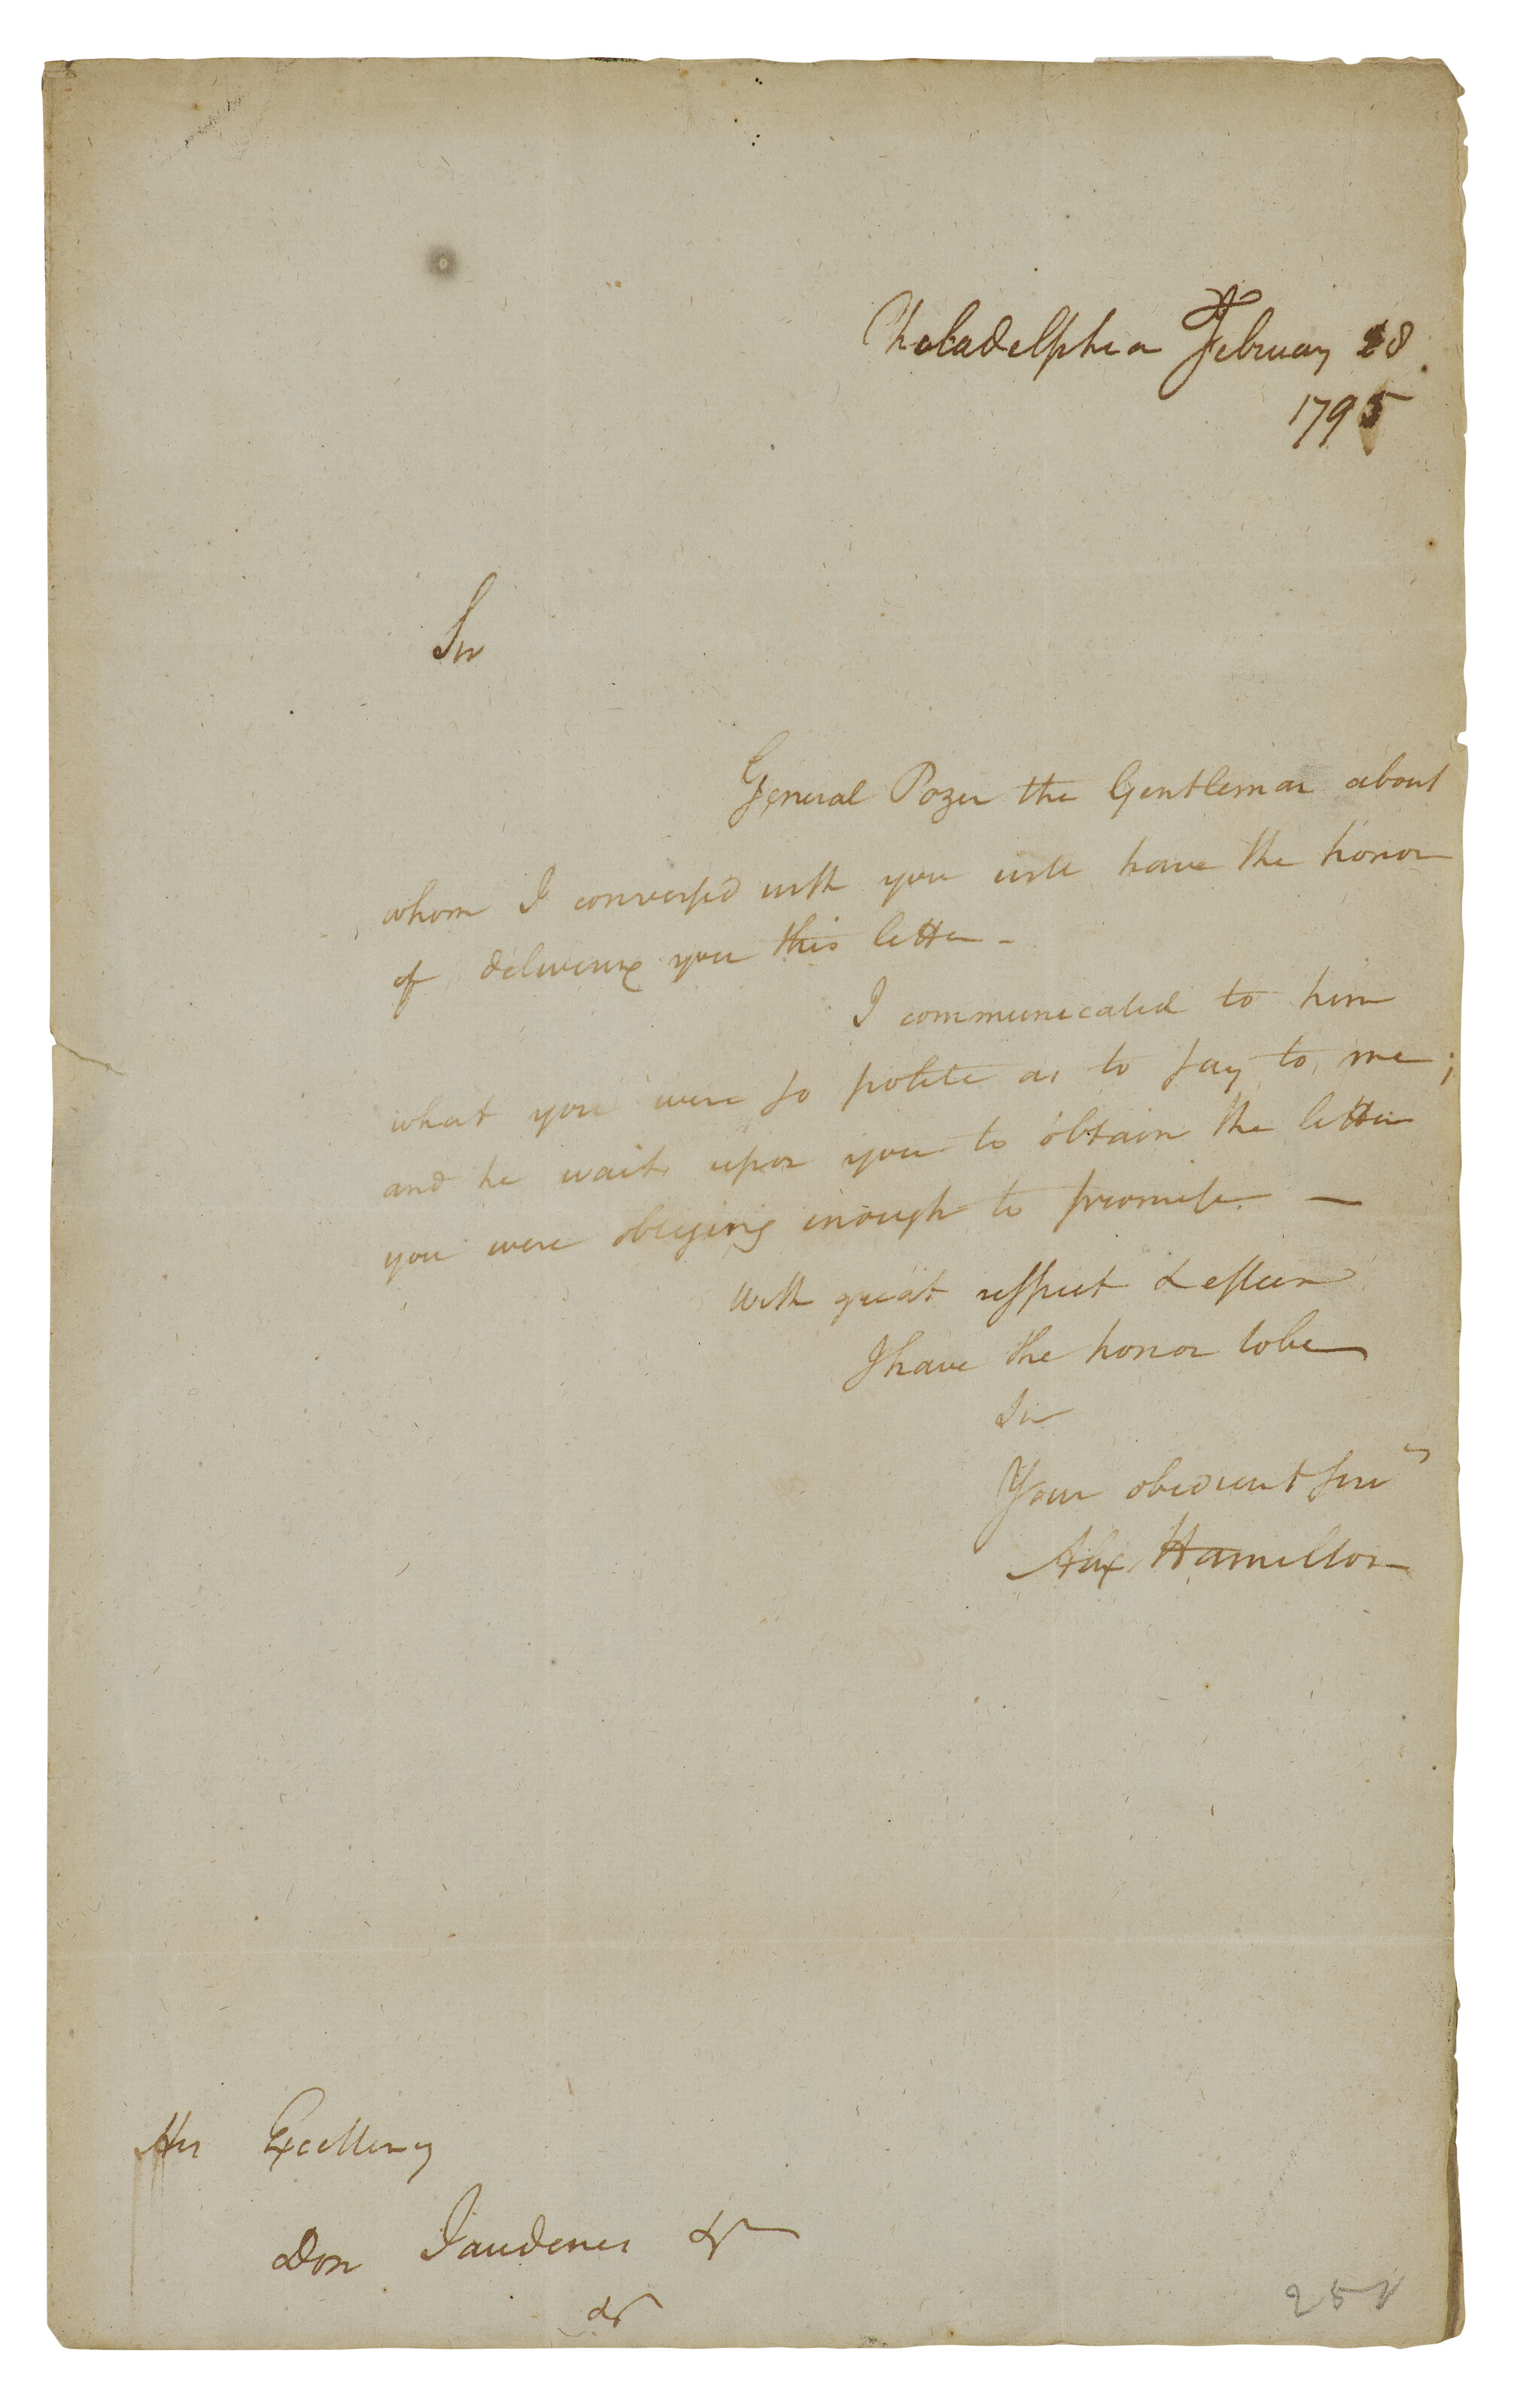 Philadelphia February 28
1795
Sir
General Pozer the Gentleman about
whom I conversed with you will have the honor
of delivering you this letter –
I communicated to him
what you were so polite as to say to me;
and he waits upon you to obtain the letter
you were obliging enough to promise. —
With great respect & esteem
I have the honor to be
Sir
Your obedient serv
Alex Hamilton
His Excellency
Don Jaudenes &c
&c
258